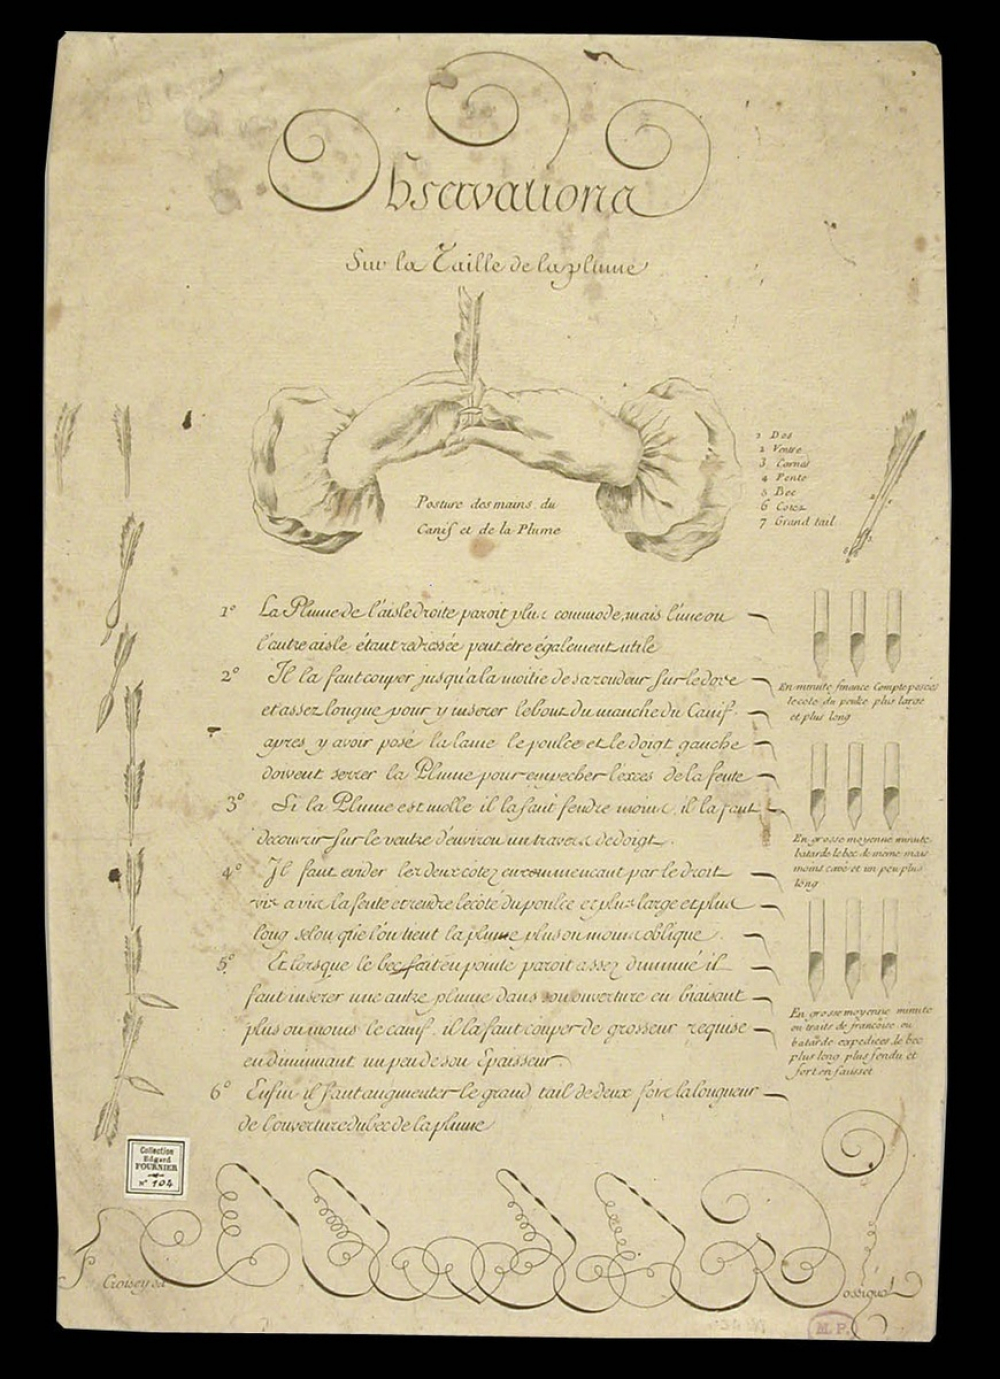 Observations
Sur la Taille de la plume
Posture des mains du
Canif et de la Plume
1 Dos
2 Ventre
3 Carnal
4 Fente
5 Bec
6 Cotez
7 Grand tail
1° La Plume de l'aisle droite paroit plus commode, mais l'une ou
l'autre aisle étant redressée peut être également utile
2° Il la faut couper jusqu'a la moitié de sa roudeur sur le dos
et assez longue pour y inserer le bout du manche du Canif.
apres y avoir posé la lame le poulce et le doigt gauche
doivent serrer la Plume pour empecher l'exces de la fente
3° Si la Plume est molle il la faut fendre moins, il la faut
decouvrir sur le ventre d'environ un travers de doigt.
4° Il faut evider les deux cotez en commencant par le droit
vis a vis la fente et rendre le coté du poulce et plus large et plus
long selon que l'on tient la plume plus ou moins oblique.
5° Et lorsque le bec fait en pointe paroit assez diminué il
faut inserer une autre plume dans son ouverture en biaisant
plus ou moins le canif, il la faut couper de grosseur requise
en diminuant un peu de son Epaisseur
6° Enfin il faut augmenter le grand tail de deux fois la longueur
de l'ouverture du bec de la plume
En minute finance Compte posées
le coté du poulce plus large
et plus long
En grosse moyenne minute
batarde le bec de meme mais
moins cavé et un peu plus
long
En grosse moyenne minute
ou traits de francoise ou
batarde expediées le bec
plus long plus fendu et
fort en fausset
Collection
Edgard
FOURNIER
N° 104
Croisey
Rossignol
M. P.